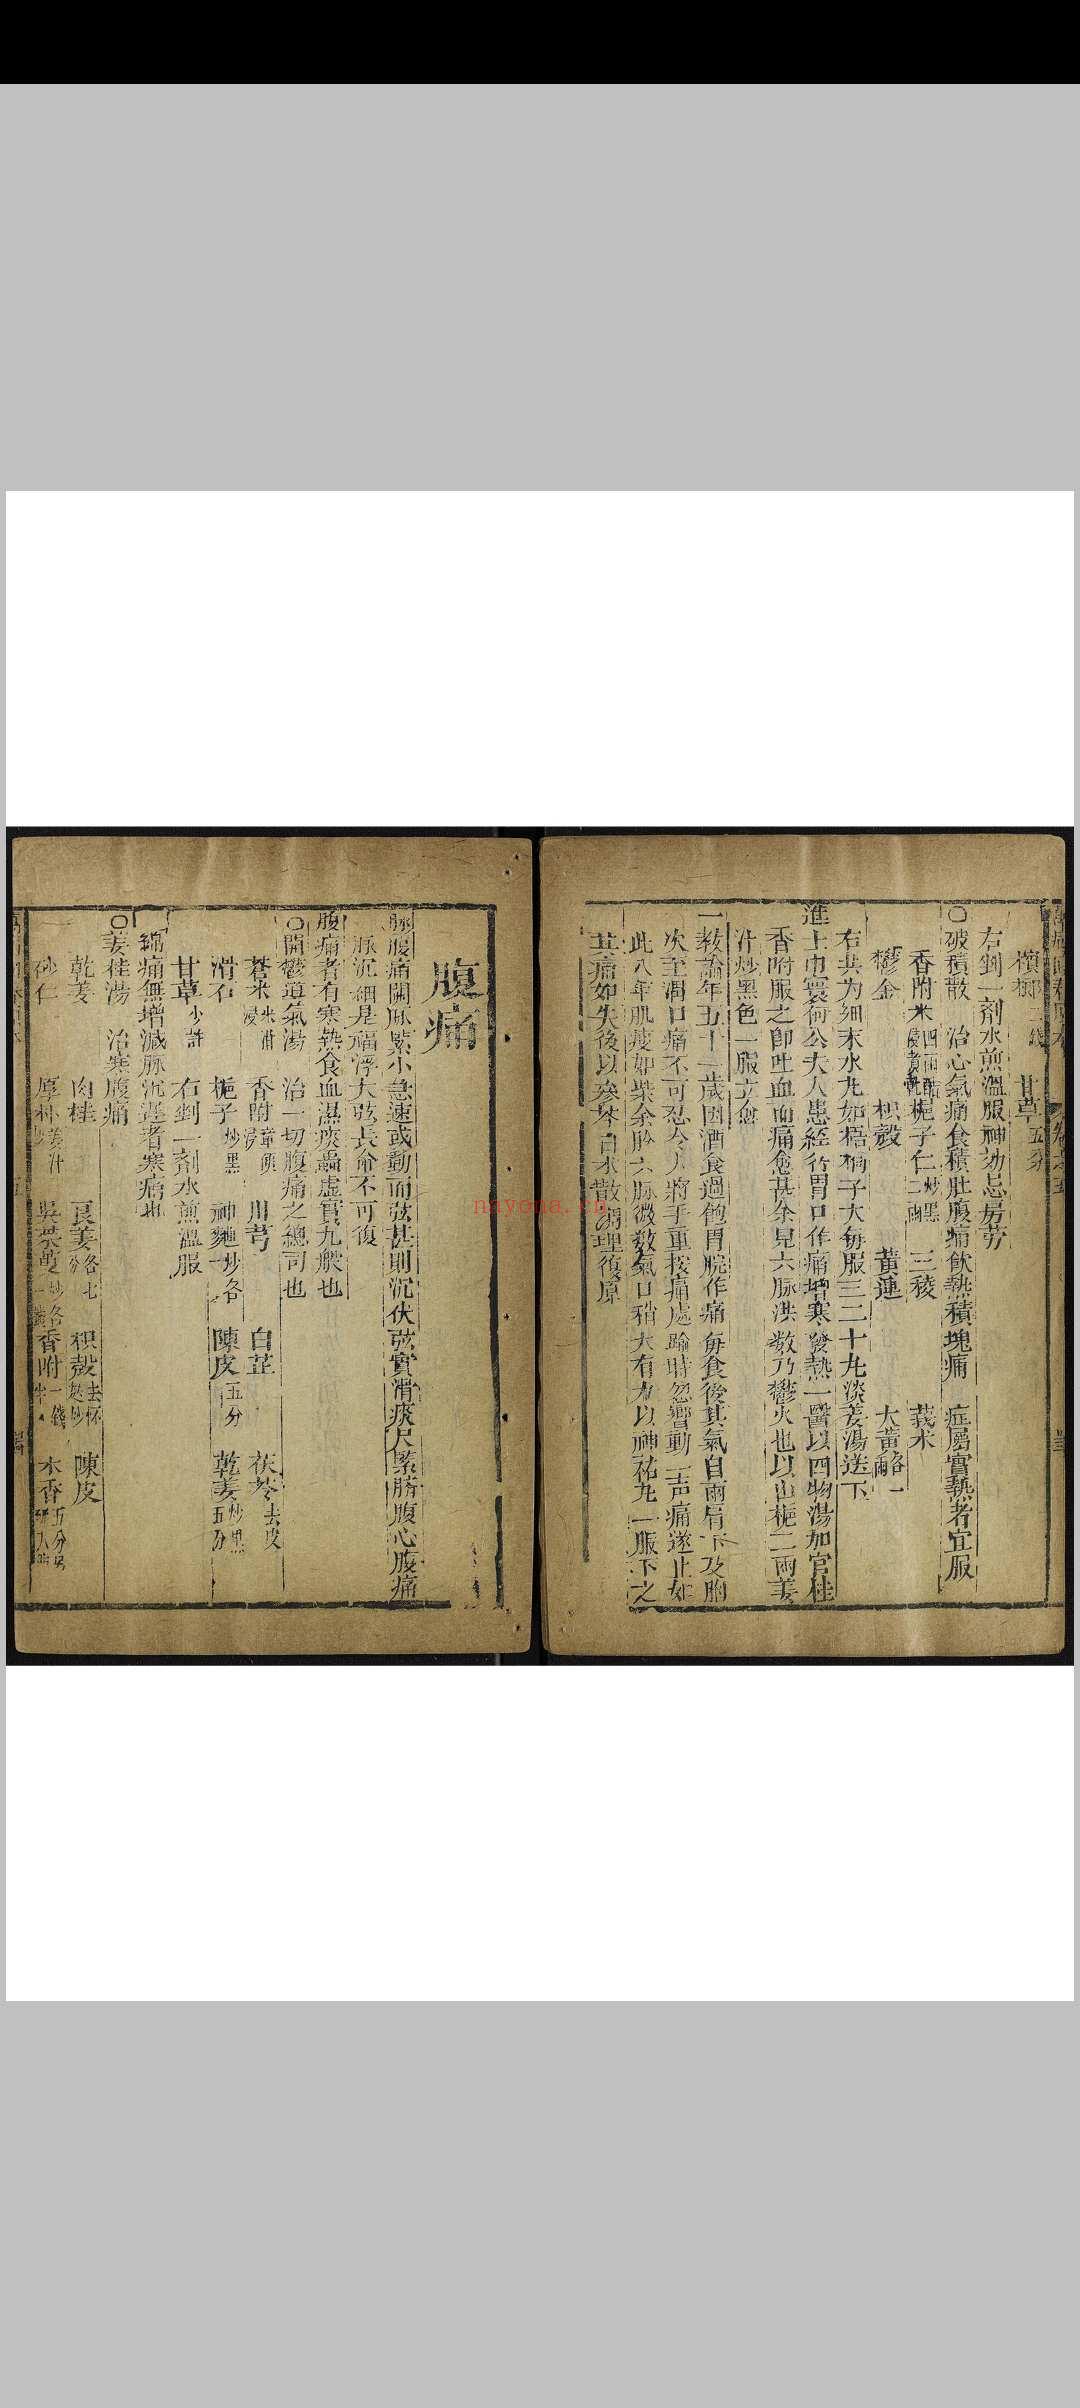 檳榔二錢 甘草五分
右剉一劑水煎溫服神効忌房劳
○破積散 治心氣痛食積肚腹痛飲熱積塊痛 症屬實熱者宜服
香附米四兩醋浸煮乾 梔子仁炒黑二兩 三稜 莪朮
鬱金 枳殼 黃連 大黃各一兩
右共为細末水丸如梧桐子大每服三二十丸淡姜湯送下
進士巾寰荷公夫人患経行胃口作痛增寒發熱一醫以四物湯加官桂
香附服之即吐血而痛愈甚余見六脉洪数乃鬱火也以山梔二兩姜
汁炒黑色一服立愈
一教諭年五十一歲因酒食過飽胃脘作痛每食後其氣自兩肩下及胸
次至胃口痛不可忍令人將手重按痛处踰時忽响動一声痛遂止如
此八年肌瘦如柴余胗六脉微数氣口稍大有力以神祐丸一服下之
其痛如失後以參苓白朮散調理復原
腹痛
脉腹痛關脉紧小急速或動而弦甚則沉伏弦實滑痰尺紧臍腹心腹痛
脉沉細是福浮大弦長命不可復
腹痛者有寒熱食血濕痰蟲虛實九般也
○開鬱道氣湯 治一切腹痛之總司也
蒼朮米泔浸 香附童便浸 川芎 白芷 茯苓去皮
滑石 梔子炒黑 神麯炒各一 陳皮五分 乾姜炒黑五分
甘草少許 右剉一劑水煎溫服
綿痛無增減脉沉遲者寒痛也
○姜桂湯 治寒腹痛
乾姜 肉桂 良姜各七分 枳殼去穰麩炒 陳皮
砂仁 厚朴姜汁炒 吳茱萸炒各一 香附一錢半 木香五分另研入